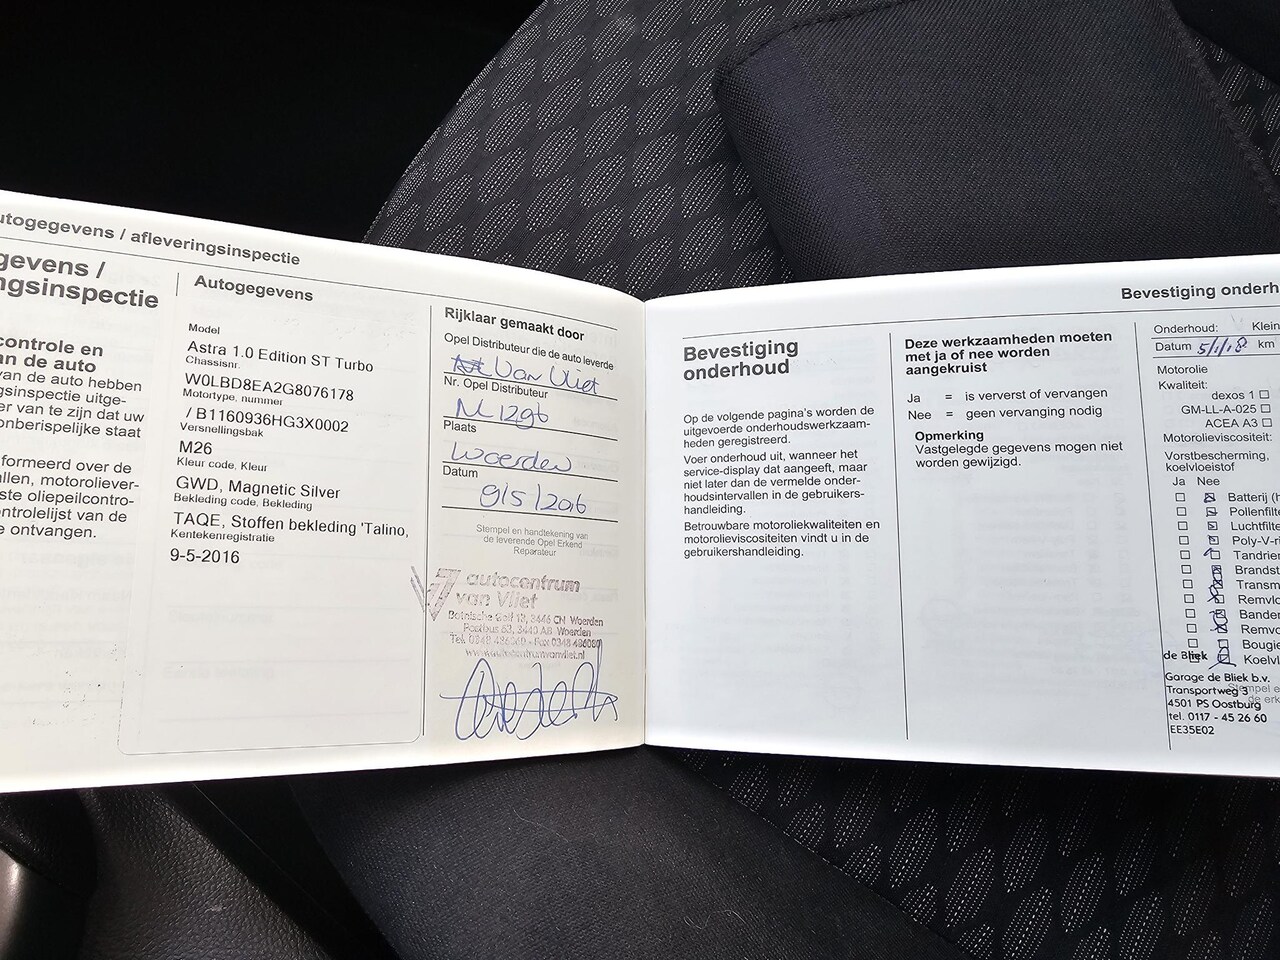 utogegevens / afleveringsinspectie
gevens /
ngsinspectie
controle en
an de auto
van de auto hebben
gsinspectie uitge-
er van te zijn dat uw
onberispelijke staat
formeerd over de
llen, motoroliever-
ste oliepeilcontro-
ntrolelijst van de
e ontvangen.
Autogegevens
Model
Astra 1.0 Edition ST Turbo
Chassisnr.
W0LBD8EA2G8076178
Motortype, nummer
/ B1160936HG3X0002
Versnellingsbak
M26
Kleur code, Kleur
GWD, Magnetic Silver
Bekleding code, Bekleding
TAQE, Stoffen bekleding 'Talino,
Kentekenregistratie
9-5-2016
Rijklaar gemaakt door
Opel Distributeur die de auto leverde
Van Vliet
Nr. Opel Distributeur
NL1296
Plaats
Woerden
Datum
9/5/2016
Stempel en handtekening van
de leverende Opel Erkend
Reparateur
autocentrum
van Vliet
Botnische Golf 13, 3446 CN Woerden
Postbus 53, 3440 AB Woerden
www.autocentrumvanvliet.nl
Bevestiging onderh
Bevestiging
onderhoud
Op de volgende pagina's worden de
uitgevoerde onderhoudswerkzaam-
heden geregistreerd.
Voer onderhoud uit, wanneer het
service-display dat aangeeft, maar
niet later dan de vermelde onder-
houdsintervallen in de gebruikers-
handleiding.
Betrouwbare motoroliekwaliteiten en
motorolieviscositeiten vindt u in de
gebruikershandleiding.
Deze werkzaamheden moeten
met ja of nee worden
aangekruist
Ja = is ververst of vervangen
Nee = geen vervanging nodig
Opmerking
Vastgelegde gegevens mogen niet
worden gewijzigd.
Onderhoud: Klein
Datum 5/1/18 km
Motorolie
Kwaliteit:
dexos 1
GM-LL-A-025
ACEA A3
Motorolieviscositeit:
Vorstbescherming,
koelvloeistof
Ja Nee
Batterij (h
Pollenfilte
Luchtfilte
Poly-V-ri
Tandrie
Brandst
Transm
Remvlo
Bande
Remvo
Bougie
Koelvl
de Bliek
Garage de Bliek b.v.
Transportweg 3
4501 PS Oostburg
tel. 0117 - 45 26 60
EE35E02